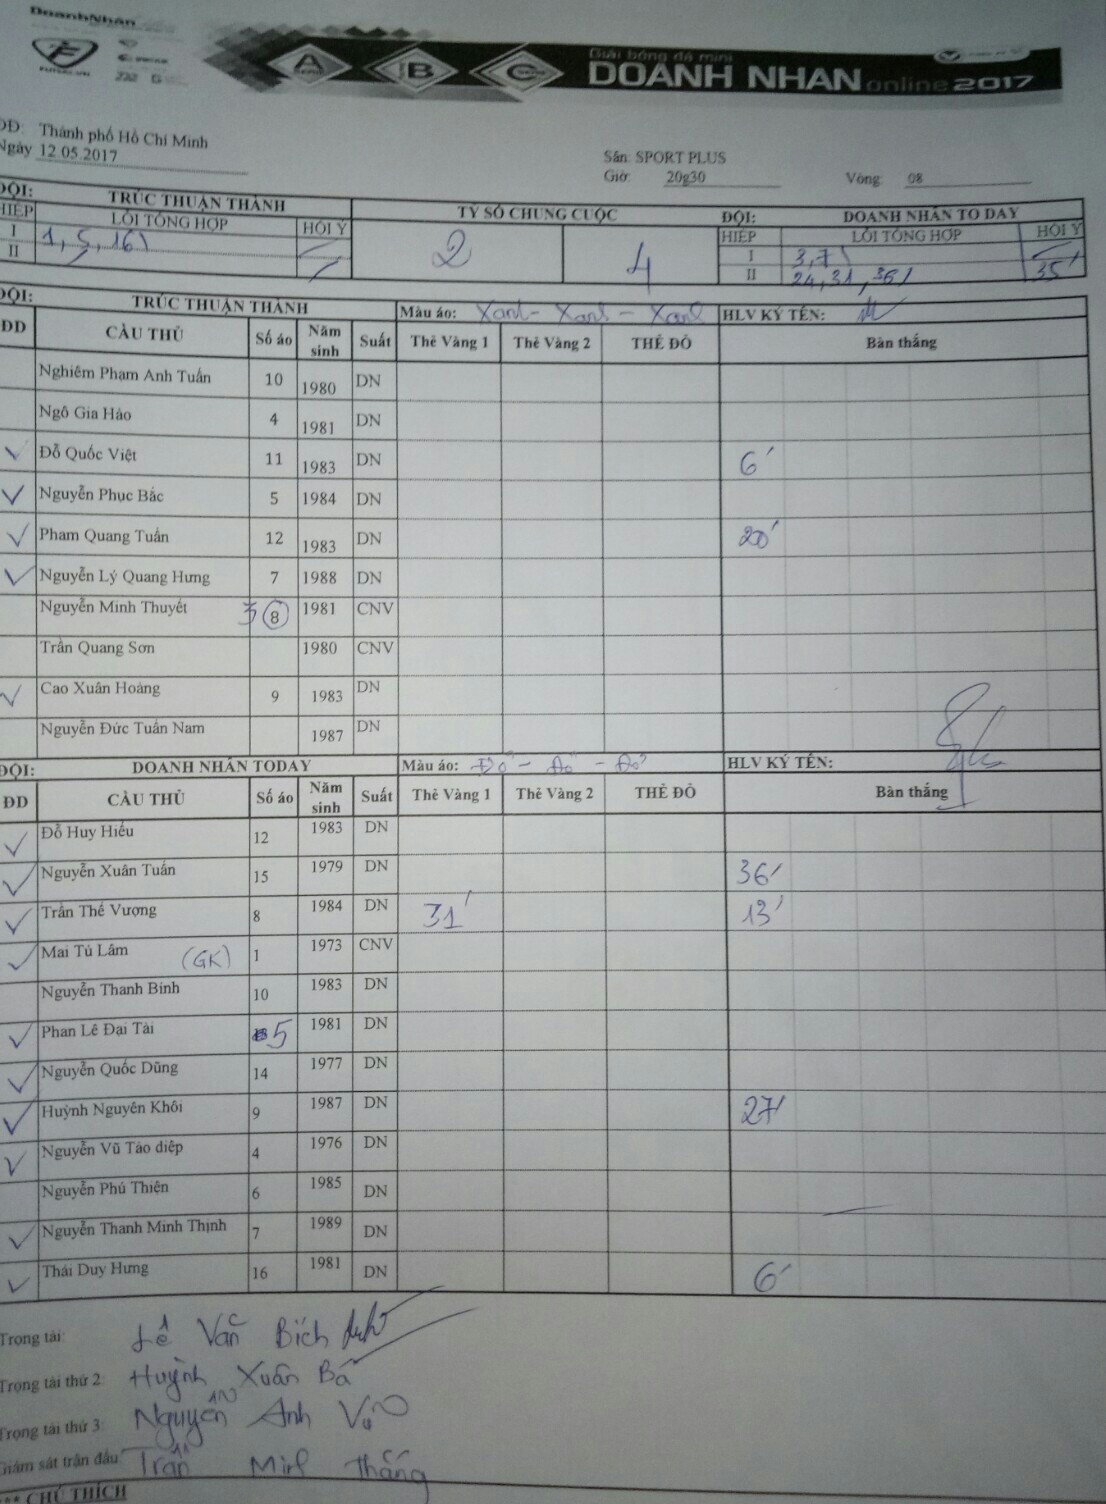 DoanhNhân
FUTSAL.VN
A B C
Giải bóng đá mini
DOANH NHÂN online 2017
ĐĐ: Thành phố Hồ Chí Minh
Ngày 12.05.2017
Sân: SPORT PLUS
Giờ: 20g30 Vòng: 08
ĐỘI: TRÚC THUẬN THÀNH TỶ SỐ CHUNG CUỘC ĐỘI: DOANH NHÂN TO DAY
HIỆP LỖI TỔNG HỢP HỘI Ý 2 4 HIỆP LỖI TỔNG HỢP HỘI Ý
I 1, 5, 16 I 3, 7
II II 24, 31, 36 35'
ĐỘI: TRÚC THUẬN THÀNH Màu áo: Xanh - Xanh - Xanh HLV KÝ TÊN:
ĐD CẦU THỦ Số áo Năm sinh Suất Thẻ Vàng 1 Thẻ Vàng 2 THẺ ĐỎ Bàn thắng
Nghiêm Phạm Anh Tuấn 10 1980 DN
Ngô Gia Hào 4 1981 DN
✓ Đỗ Quốc Việt 11 1983 DN 6'
✓ Nguyễn Phục Bắc 5 1984 DN
✓ Phạm Quang Tuấn 12 1983 DN 20'
✓ Nguyễn Lý Quang Hưng 7 1988 DN
Nguyễn Minh Thuyết 3 8 1981 CNV
Trần Quang Sơn 1980 CNV
✓ Cao Xuân Hoàng 9 1983 DN
Nguyễn Đức Tuấn Nam 1987 DN
ĐỘI: DOANH NHÂN TODAY Màu áo: Đỏ - Đỏ - Đỏ HLV KÝ TÊN:
ĐD CẦU THỦ Số áo Năm sinh Suất Thẻ Vàng 1 Thẻ Vàng 2 THẺ ĐỎ Bàn thắng
✓ Đỗ Huy Hiếu 12 1983 DN
✓ Nguyễn Xuân Tuấn 15 1979 DN 36'
✓ Trần Thế Vượng 8 1984 DN 31' 13'
✓ Mai Tú Lâm (GK) 1 1973 CNV
Nguyễn Thanh Bình 10 1983 DN
✓ Phan Lê Đại Tài 5 1981 DN
✓ Nguyễn Quốc Dũng 14 1977 DN
✓ Huỳnh Nguyên Khôi 9 1987 DN 27'
✓ Nguyễn Vũ Tảo diệp 4 1976 DN
Nguyễn Phú Thiện 6 1985 DN
✓ Nguyễn Thanh Minh Thịnh 7 1989 DN
✓ Thái Duy Hưng 16 1981 DN 6'
Trọng tài: Lê Văn Bích
Trọng tài thứ 2: Huỳnh Xuân Bá
Trọng tài thứ 3: Nguyễn Anh Vũ
Giám sát trận đấu: Trần Minh Thắng
*** CHÚ THÍCH